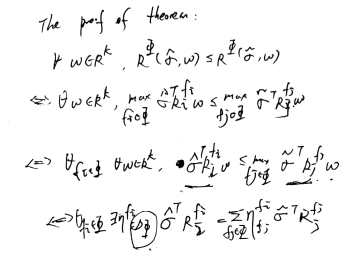 The proof of theorem:
∀ w∈R^k, R^Φ(σ̂,w) ≤ R^Φ(σ̃,w)
⇔ ∀ w∈R^k, max_{f_i∈Φ} σ̂^T R_i^{f_i} w ≤ max_{f_j∈Φ} σ̃^T R_j^{f_j} w
⇔ ∀ f_i∈Φ ∀ w∈R^k, σ̂^T R_i^{f_i} w ≤ max_{f_j∈Φ} σ̃^T R_j^{f_j} w
⇔ ∀ f_i∈Φ ∃ η^{f_i}∈ΔΦ σ̂^T R_i^{f_i} = Σ_{f_j∈Φ} η_{f_j}^{f_i} σ̃^T R_j^{f_j}